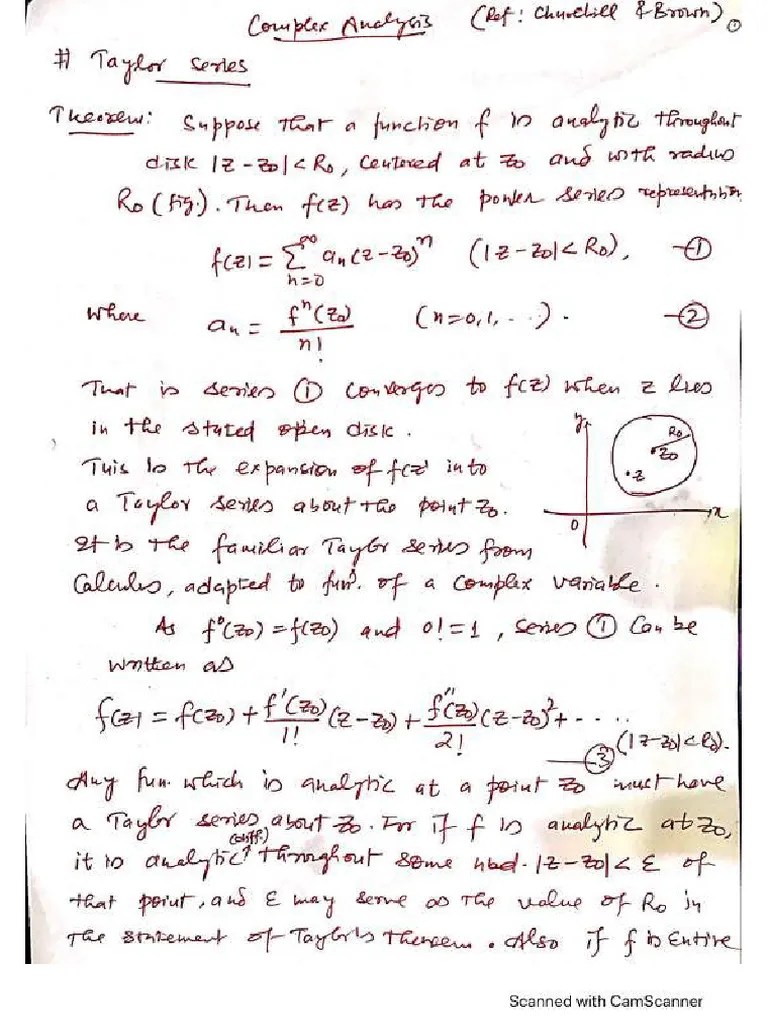 Complex Analysis (Ref: Churchill & Brown) ①
# Taylor series
Theorem: Suppose that a function f is analytic throughout
disk |z - z0| < R0, centered at z0 and with radius
R0 (fig.). Then f(z) has the power series representation
f(z) = ∑_{n=0}^{∞} an (z - z0)^n (|z - z0| < R0), —①
where an = f^n(z0)/n! (n = 0, 1, ...). —②
That is series ① converges to f(z) when z lies
in the stated open disk.
y R0 z0 z 0 x
This is the expansion of f(z) into
a Taylor series about the point z0.
It is the familiar Taylor series from
Calculus, adapted to funⁿ. of a complex variable.
As f^0(z0) = f(z0) and 0! = 1, series ① can be
written as
f(z) = f(z0) + f'(z0)/1! (z - z0) + f''(z0)/2! (z - z0)^2 + ....
—③ (|z - z0| < R0).
Any fun. which is analytic at a point z0 must have
a Taylor series about z0. For if f is analytic at z0,
(diff.)
it is analytic throughout some nbd. |z - z0| < ε of
that point, and ε may serve as the value of R0 in
the statement of Taylor's theorem. Also if f is entire
Scanned with CamScanner